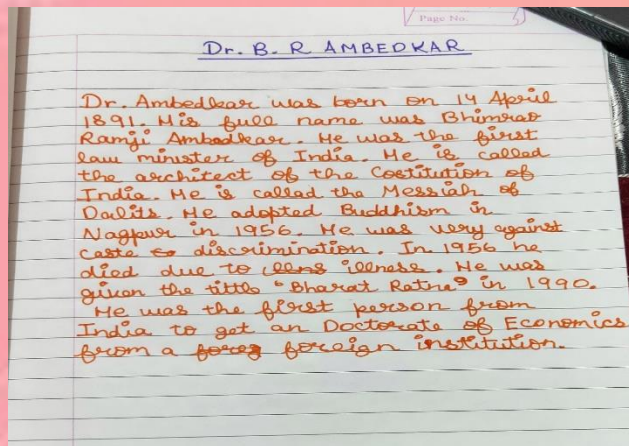 Page No.
Dr. B. R AMBEDKAR
Dr. Ambedkar was born on 14 April
1891. His full name was Bhimrao
Ramji Ambedkar. He was the first
law minister of India. He is called
the architect of the Costitution of
India. He is called the Messiah of
Dalits. He adopted Buddhism in
Nagpur in 1956. He was very against
caste discrimination. In 1956 he
died due to illness. He was
given the tittle "Bharat Ratna" in 1990.
He was the first person from
India to get an Doctorate of Economics
from a foreign institution.